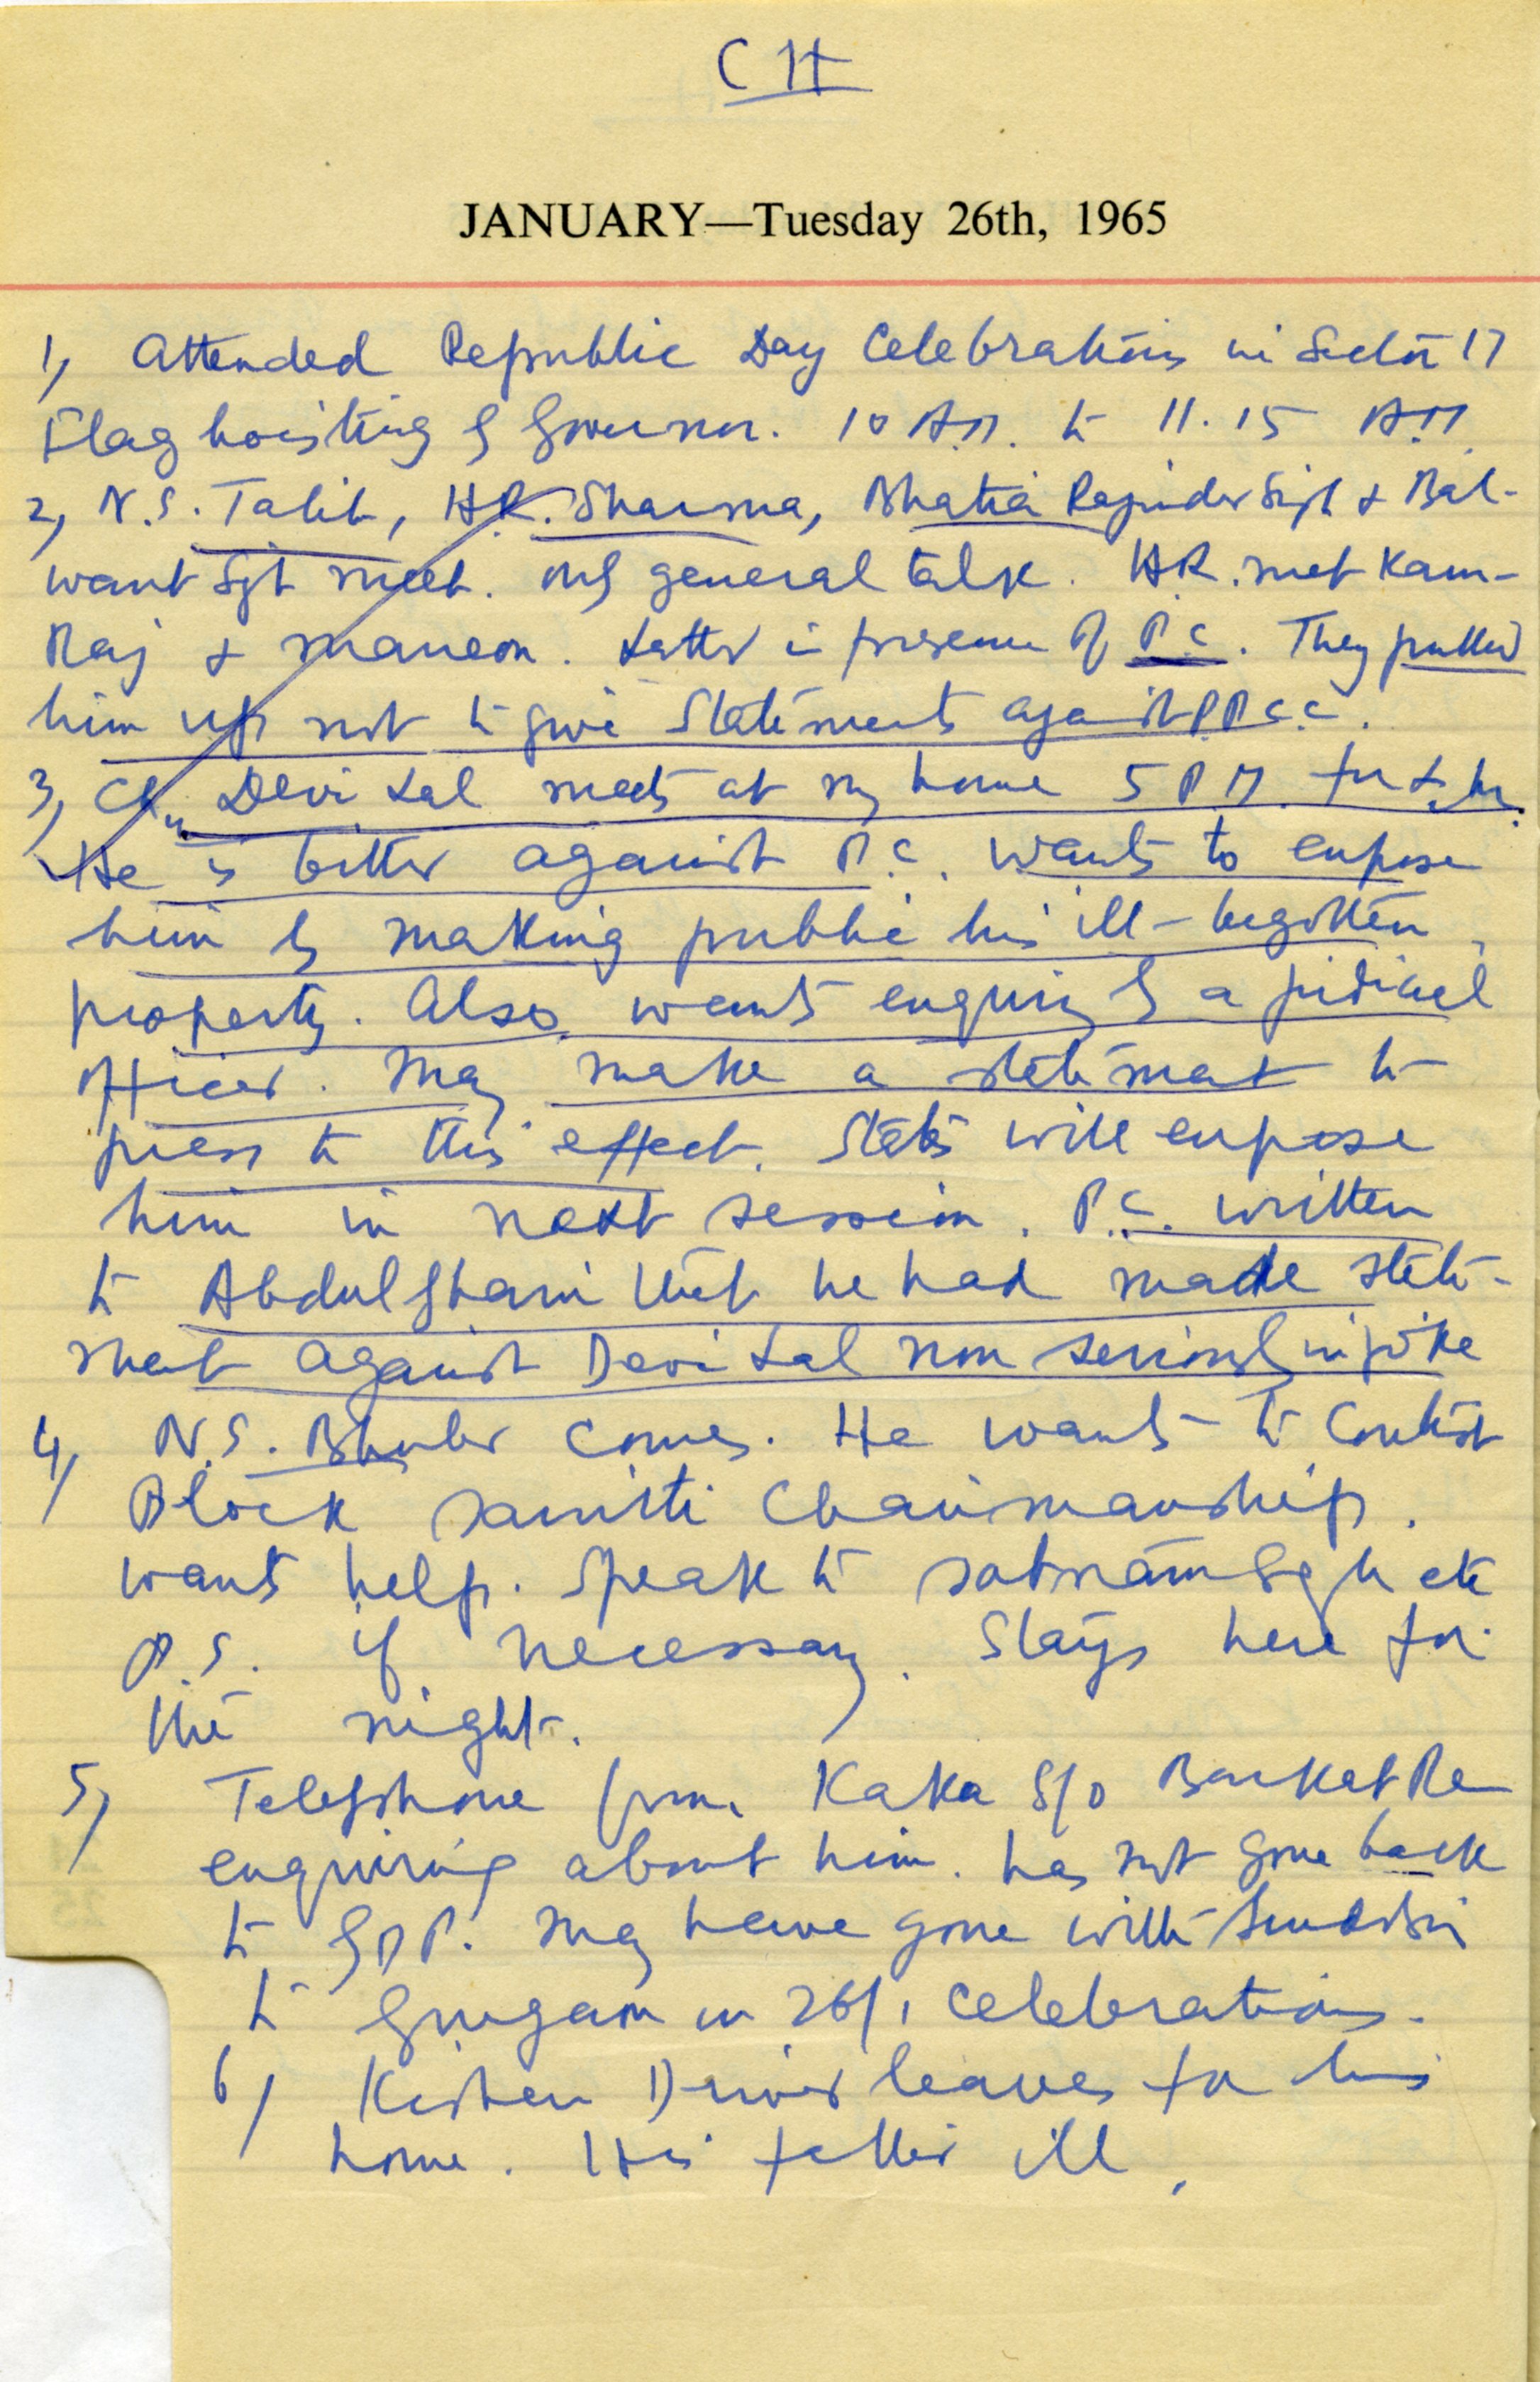 CH
JANUARY—Tuesday 26th, 1965
1, Attended Republic Day Celebrations in Sector 17
Flag hoisting by Governor. 10 A.M. to 11.15 A.M.
2, N.S. Talib, H.R. Sharma, Bhatia Rajinder Singh & Bal-
want Sgh meet. only general talk. H.R. met Kam-
Raj & Maneon. Latter in presence of P.C. They pulled
him up not to give Statements against P.P.C.C.
3, Ch. Devi Lal meets at my home 5 P.M. for
He is bitter against P.C. wants to expose
him by making public his ill-begotten
property. Also wants enquiry by a judicial
officer. May make a statement to
press to this effect. States will expose
him in next session. P.C. written
to Abdul Ghani that he had made state-
ment against Devi Lal non seriously in joke
4, N.S. Bhuler comes. He wants to Contest
Block Samiti Chairmanship.
wants help. Speak to Satnam Sgh etc
P.S. if necessary. Stays here for
the night.
5, Telephone from Kaka S/o Barkat Ra
enquiring about him. has not gone back
to GDP. May have gone with
to Gurgaon in 26/1 celebrations.
6, Kishen Driver leaves for his
home. His father ill.